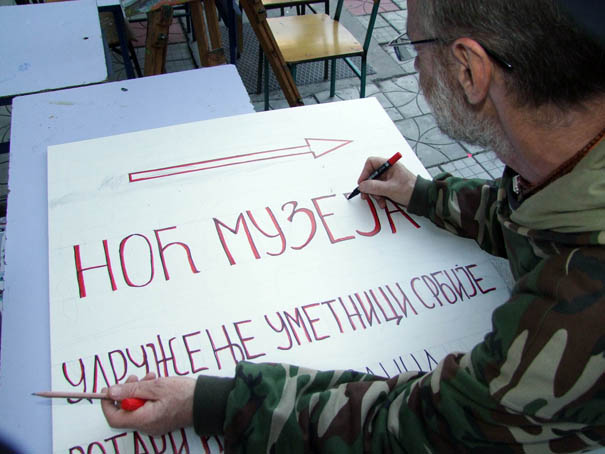 НОЋ МУЗЕЈА
УДРУЖЕЊЕ УМЕТНИЦИ СРБИЈЕ
РОТАРИ